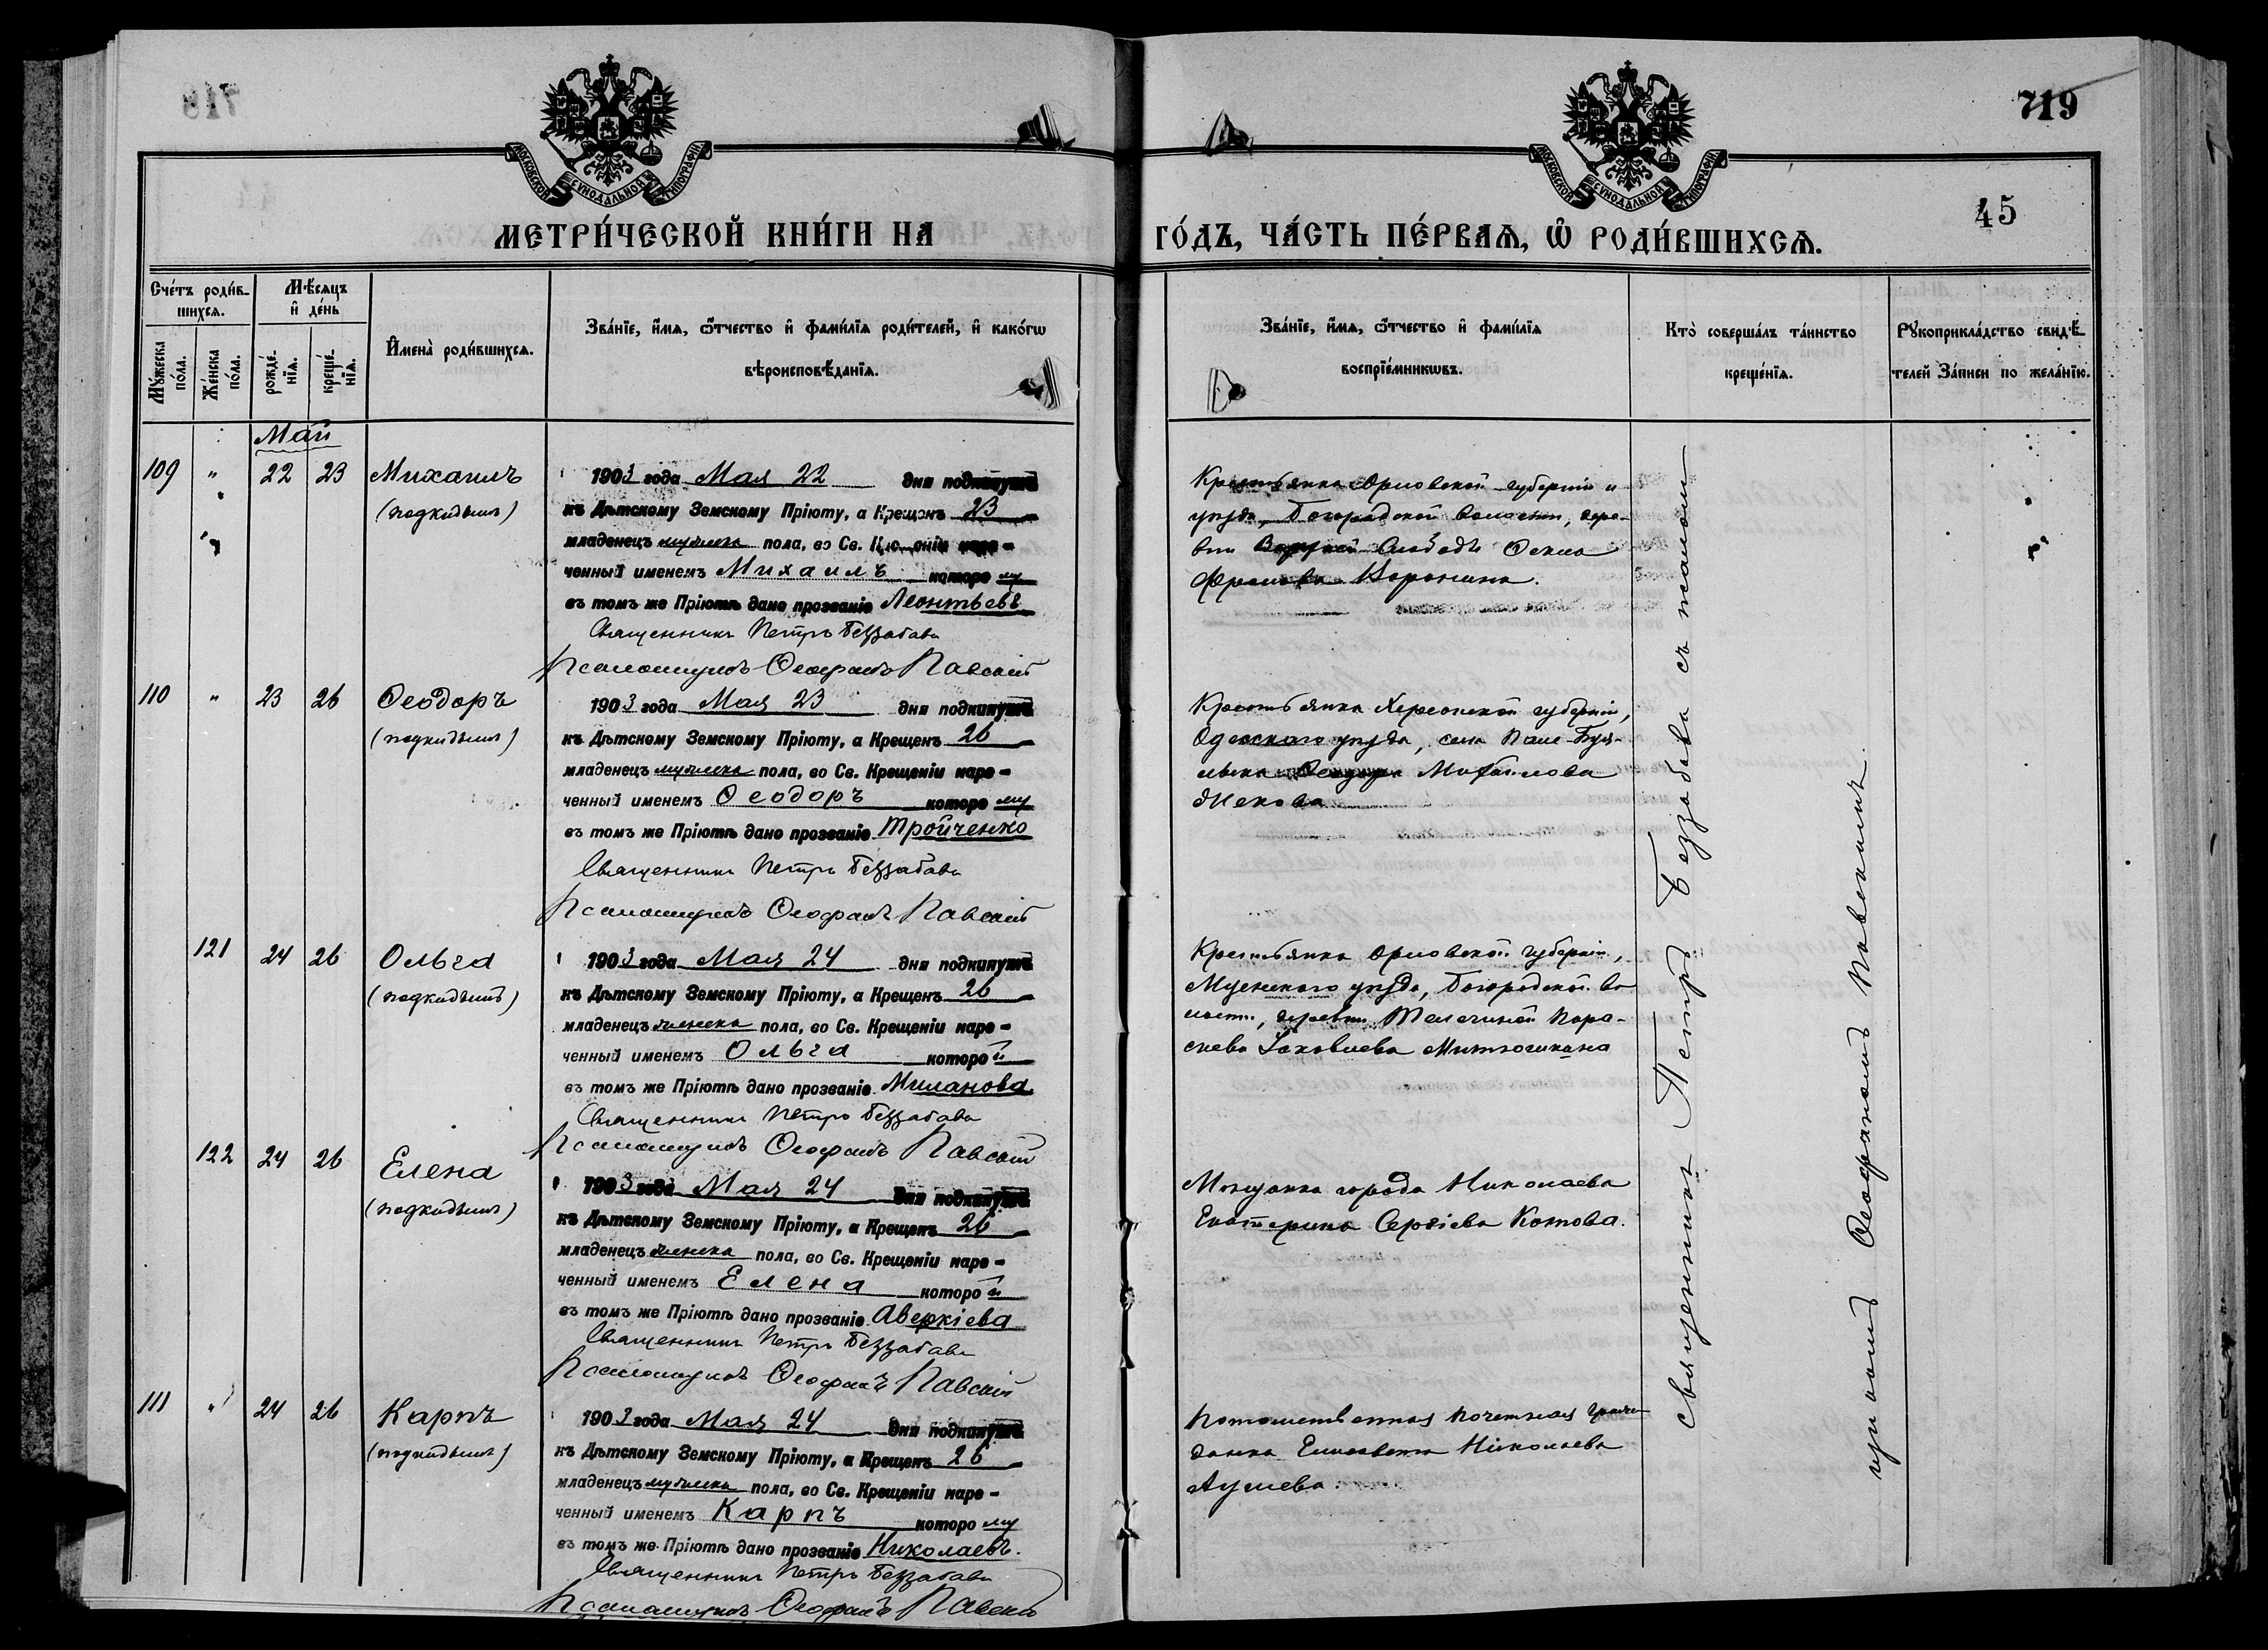 719
45
МОСКОВСКОЙ СУНОДАЛЬНОЙ ТИПОГРАФІИ
МОСКОВСКОЙ СУНОДАЛЬНОЙ ТИПОГРАФІИ
МЕТРИ́ЧЕСКОЙ КНИ́ГИ НА
ГО́ДЪ, ЧА́СТЬ ПЕ́РВАѦ, Ѡ҆ РОДИ́ВШИХСѦ.
Сче́тъ роди́в-
шихсѧ.
Мꙋ́жеска по́ла.
Же́нска по́ла.
Мѣ́сѧцъ
и҆ де́нь
рожде́-нїѧ.
креще́-нїѧ.
И҆мена̀ роди́вшихсѧ.
Зва́нїе, и҆́мѧ, ѻ҆́тчество и҆ фами́лїѧ роди́телей, и҆ како́гѡ
вѣроисповѣ́данїѧ.
Зва́нїе, и҆́мѧ, ѻ҆́тчество и҆ фами́лїѧ
воспрїе́мникѡвъ.
Кто̀ соверша́лъ та́инство
креще́нїѧ.
Рꙋкоприкла́дство свидѣ́-
телей За́писи по жела́нїю.
Май
109 " 22 23 Михаилъ
(подкидышъ)
1903 года Мая 22 дня подкинутъ
къ Дѣтскому Земскому Пріюту, а Крещенъ 23
младенецъ мужеска пола, во Св. Крещеніи наре-
ченный именемъ Михаилъ которому
въ томъ же Пріютѣ дано прозваніе Леонтьевъ
Священникъ Петръ Беззабава
Псаломщикъ Ѳеофанъ Павскій
Крестьянка Орловской губерніи и
уѣзда, Богородской волости, дере-
вни Слободы
Фролова Воронина.
110 " 23 26 Ѳеодоръ
(подкидышъ)
1903 года Мая 23 дня подкинутъ
къ Дѣтскому Земскому Пріюту, а Крещенъ 26
младенецъ мужеска пола, во Св. Крещеніи наре-
ченный именемъ Ѳеодоръ которому
въ томъ же Пріютѣ дано прозваніе Тройченко
Священникъ Петръ Беззабава
Псаломщикъ Ѳеофанъ Павскій
Крестьянка Херсонской губерніи,
Одесскаго уѣзда, села
Михайлова
121 24 26 Ольга
(подкидышъ)
1903 года Мая 24 дня подкинутъ
къ Дѣтскому Земскому Пріюту, а Крещенъ 26
младенецъ женска пола, во Св. Крещеніи наре-
ченный именемъ Ольга которой
въ томъ же Пріютѣ дано прозваніе Миланова
Священникъ Петръ Беззабава
Псаломщикъ Ѳеофанъ Павскій
Крестьянка Орловской губерніи,
Мценскаго уѣзда, Богородской во
лости, деревни Телегиной Пара-
скева Іаковлева Митюшкина
122 24 26 Елена
(подкидышъ)
1903 года Мая 24 дня подкинутъ
къ Дѣтскому Земскому Пріюту, а Крещенъ 26
младенецъ женска пола, во Св. Крещеніи наре-
ченный именемъ Елена которой
въ томъ же Пріютѣ дано прозваніе Аверкіева
Священникъ Петръ Беззабава
Псаломщикъ Ѳеофанъ Павскій
Мѣщанка города Николаева
Екатерина Сергіева Котова.
111 " 24 26 Карпъ
(подкидышъ)
1903 года Мая 24 дня подкинутъ
къ Дѣтскому Земскому Пріюту, а Крещенъ 26
младенецъ мужеска пола, во Св. Крещеніи наре-
ченный именемъ Карпъ которому
въ томъ же Пріютѣ дано прозваніе Николаевъ.
Священникъ Петръ Беззабава
Псаломщикъ Ѳеофанъ Павскій
Потомственная почетная граж-
данка Елисавета Николаева
Священникъ Петръ Беззабава съ псалом
щикомъ Ѳеофаномъ Павскимъ